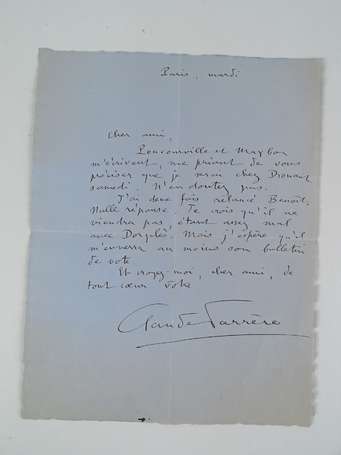 Paris, mardi
Cher ami,
Poncourville et Maybon
m'écrivent, me priant de vous
préciser que je serai chez Drouant
samedi. N'en doutez pas.
J'ai deux fois relancé Benoit.
Nulle réponse. Je crois qu'il ne
viendra pas, étant assez mal
avec Dorgelès. Mais j'espère qu'il
m'enverra au moins son bulletin
de vote.
Et croyez-moi, cher ami, de
tout cœur vôtre
Claude Farrère